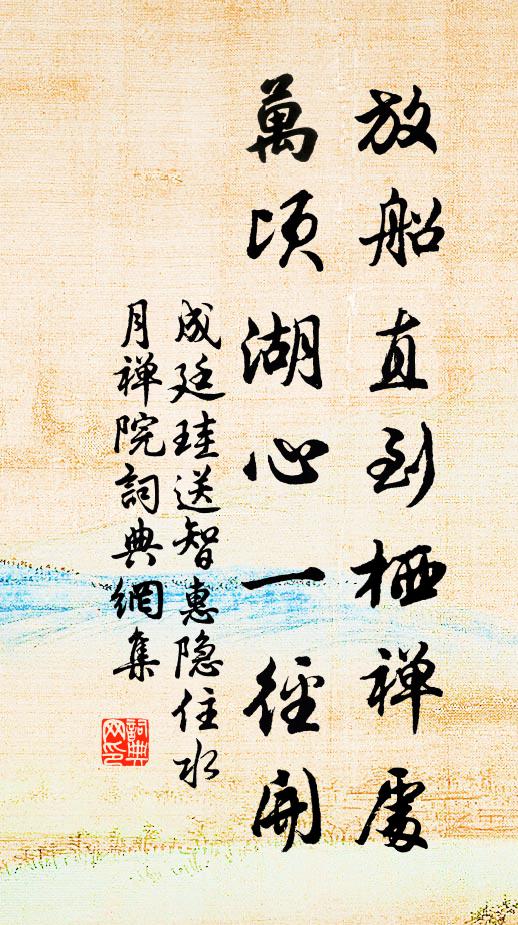 放船直到栖禅處
萬頃湖心一徑開
成廷珪送智惠隐住水
月禅院詞典網集
詞典网印